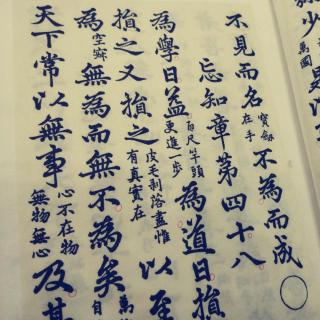 不見而名寶劒在手不為而成
忘知章第四十八
為學日益百尺竿頭更進一步為道日損
損之又損之皮毛剥落盡惟有真實在以至
為空寂無為而無不為矣萬自
天下常以無事心不在物無物無心及其